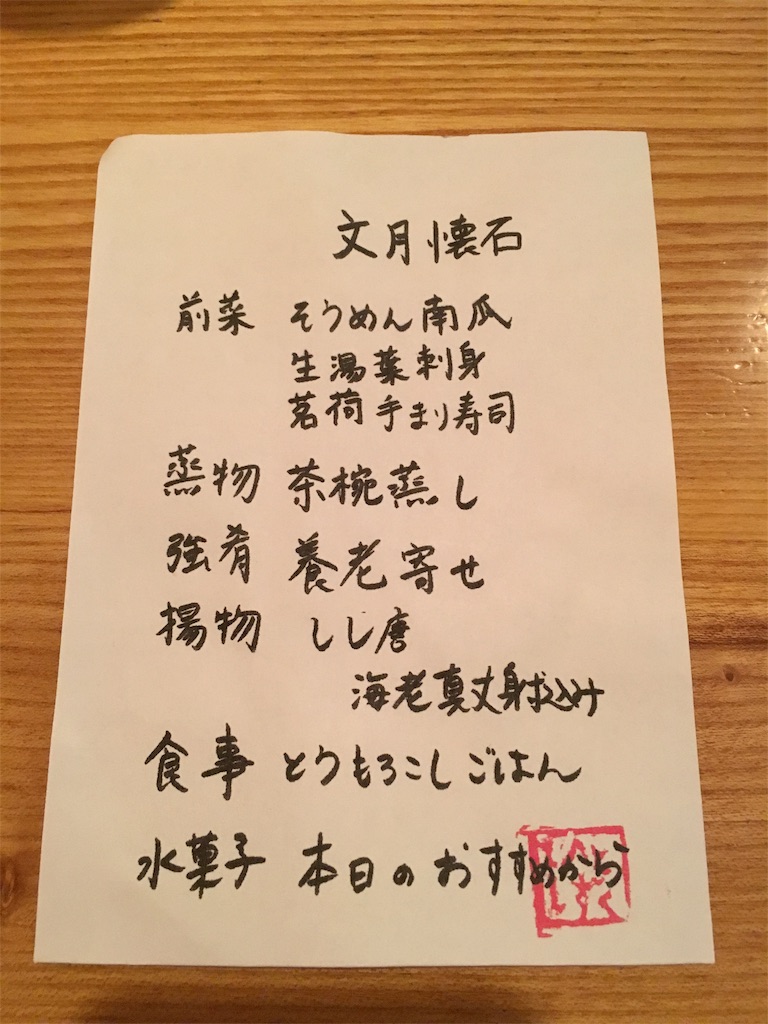 文月懐石
前菜 そうめん南瓜
生湯葉刺身
茗荷手まり寿司
蒸物 茶椀蒸し
強肴 養老寄せ
揚物 しし唐
海老真丈射込み
食事 とうもろこしごはん
水菓子 本日のおすすめから